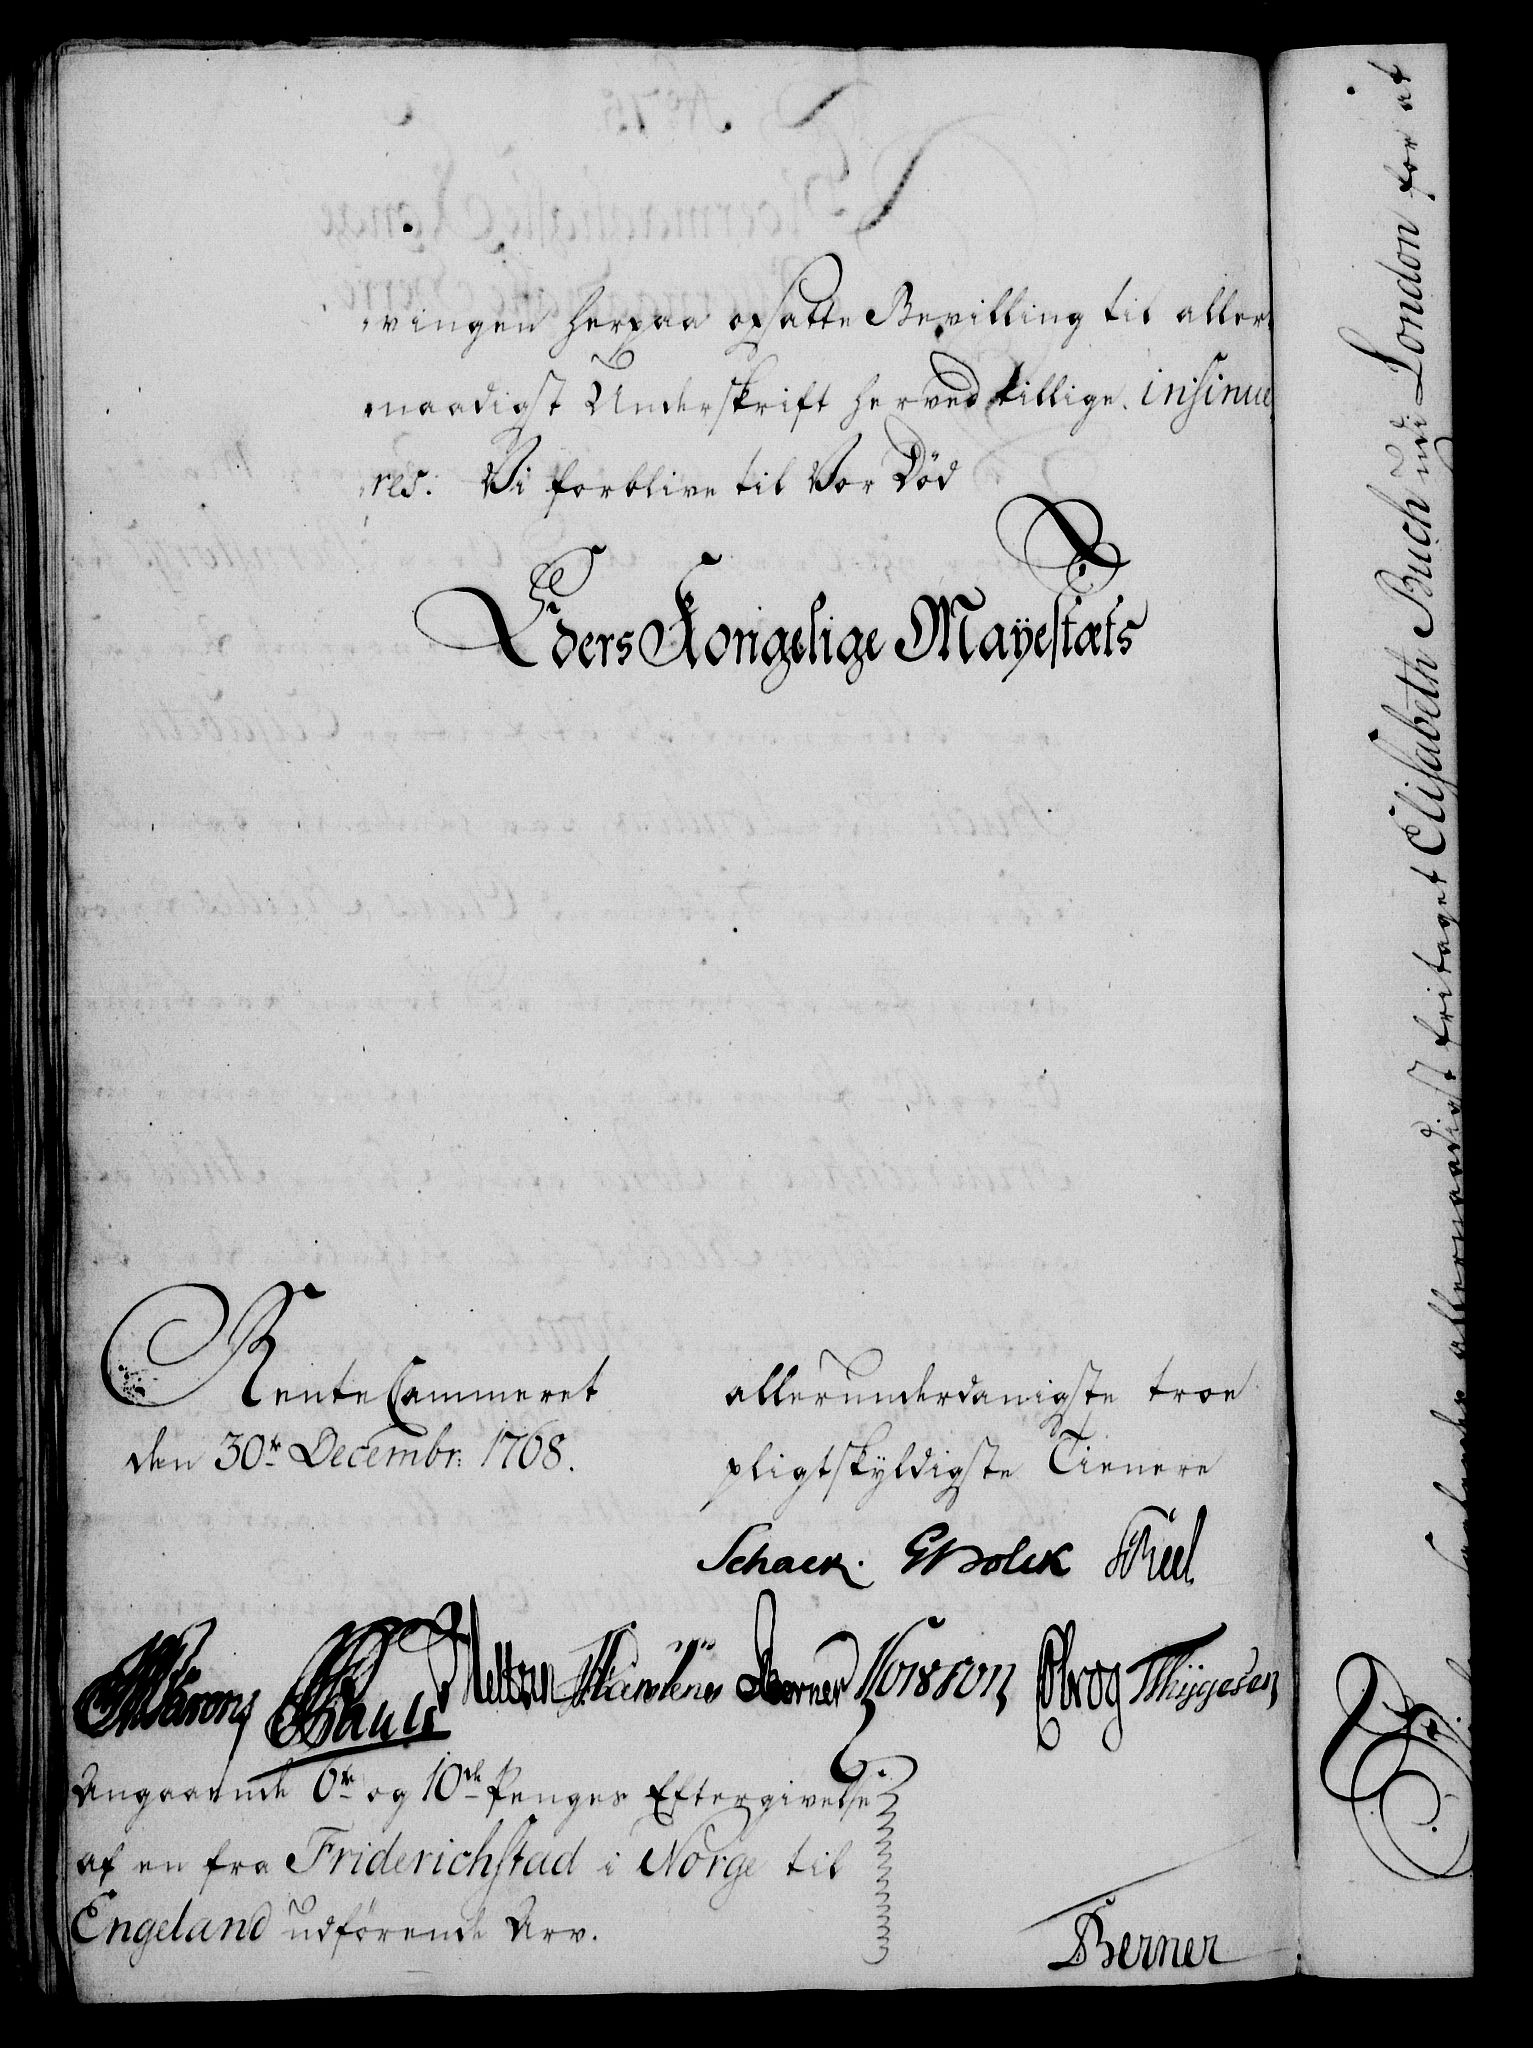 vingen herpaa opsatte Bevilling til aller-
naadigst Underskrift herved tillige insinue-
res. Vi forblive til Vor Død
Eders Kongelige Mayestæts
Rente Cammeret
den 30te Decembr: 1768.
allerunderdanigste troe
pligtskyldigste Tienere
Schack. GHolck
Berner Thygesen
Angaaende 6te og 10de Penges Eftergivelse
af en fra Friderichstad i Norge til
Engeland udførende Arv.
Berner
allernaadigst fritaget Elisabeth Buch udi London for at